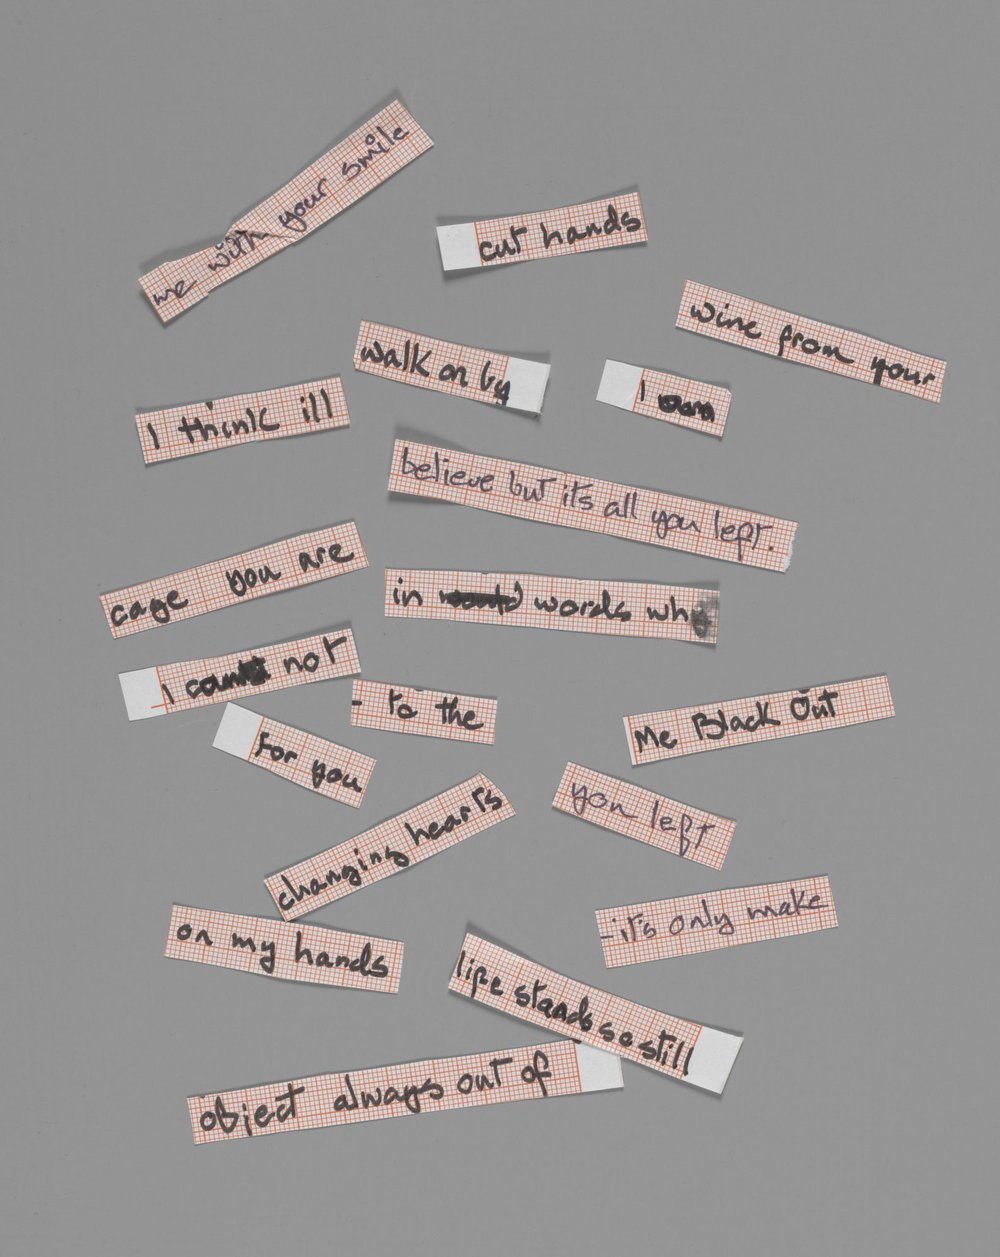 me with your smile
cut hands
wine from your
walk on by
I
I think ill
believe but its all you left.
cage you are
in words who
I not
- to the
Me Black Out
for you
changing hearts
you left
- it's only make
on my hands
life stands so still
object always out of